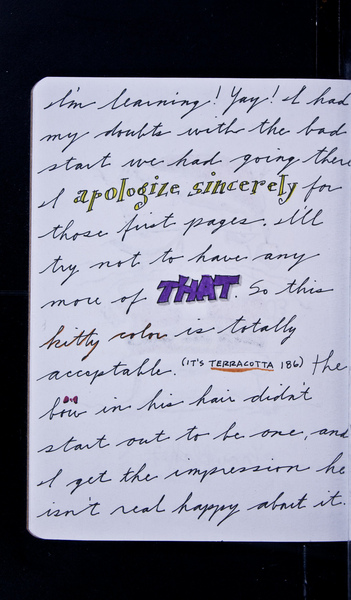 I'm learning! Yay! I had
my doubts with the bad
start we had going there
I apologize sincerely for
those first pages. I'll
try not to have any
more of THAT. So this
kitty color is totally
acceptable. (IT'S TERRACOTTA 186) The
bow in his hair didn't
start out to be one, and
I get the impression he
isn't real happy about it.